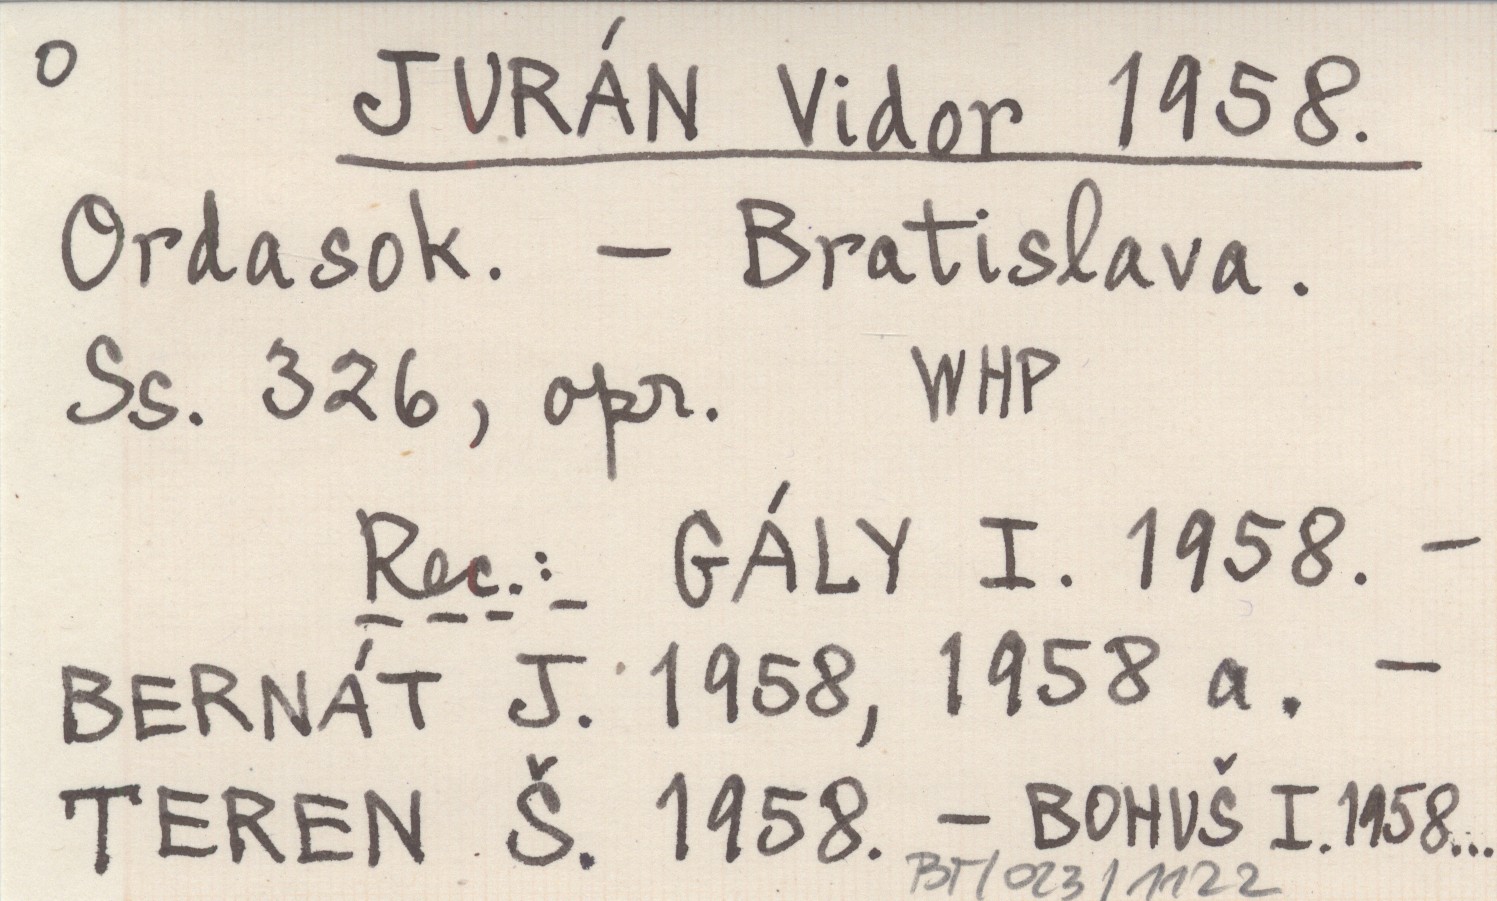 O JURÁN Vidor 1958.
Ordasok. – Bratislava.
Ss. 326, opr. WHP
Rec.: GÁLY I. 1958. –
BERNÁT J. 1958, 1958 a. –
TEREN Š. 1958. – BOHUŠ I. 1958...
BT/023/1122